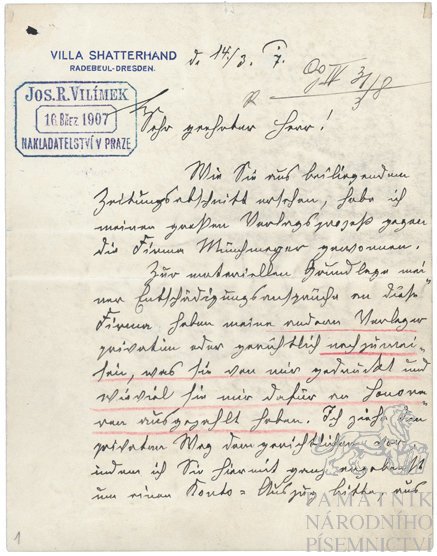 VILLA SHATTERHAND
RADEBEUL-DRESDEN.
d. 14/3. 7.
JOS. R. VILÍMEK
16 BŘEZ 1907
NAKLADATELSTVÍ V PRAZE
Sehr geehrter Herr!
Wie Sie aus beiliegendem
Zeitungsabschnitt ersehen, habe ich
meinen großen Verlagsprozeß gegen
die Firma Münchmeyer gewonnen.
Zur materiellen Grundlage mei-
ner Entschädigungsansprüche an diese
Firma haben meine andern Verleger
privatim oder gerichtlich nachzuwei-
sen, was sie von mir gedruckt und
wieviel sie mir dafür an Honora-
ren ausgezahlt haben. Ich ziehe den
privaten Weg dem gerichtlichen vor
indem ich Sie hiermit ganz ergebenst
um einen Konto=Auszug bitte, aus
1
PAMÁTNÍK
NÁRODNÍHO
PÍSEMNICTVÍ